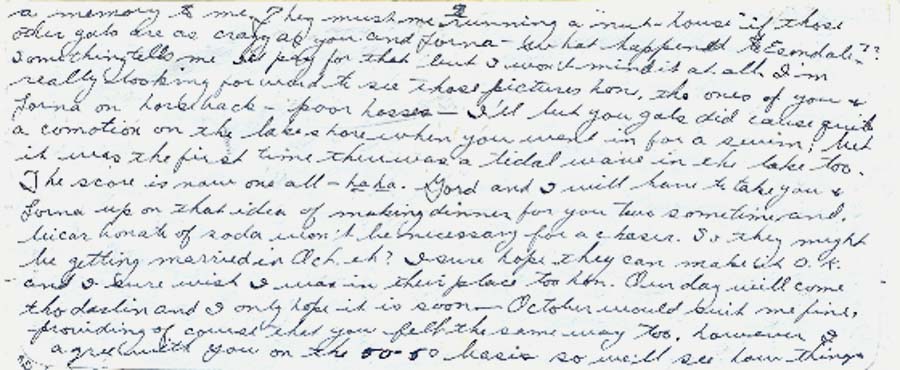 a memory to me. They must me running a "nut-house" if those
other gals are as crazy as you and Lorna - what happened to Esendale??
Something tells me I'll pay for that but I won't mind it at all. I-m
really looking forward to see those pictures hon, the ones of you &
Lorna on horseback - poor hosses - I'll bet you gals did cause quite
a comotion on the lakeshore when you went in for a swim, bet
it was the first time ther was a tidal wave in the lake too.
The score is now one all - haha. Gord and I will have to take you &
Lorna up on that idea of making dinner for you two sometime and,
bicarbonate of soda won't be necessary for a chaser. So they might
be getting married in Oct. eh? I sure hope they can make it O.K.
and I sure wish I was in their place too hon. Our day will come
tho darlin and I only hope it is soon - October would suit me fine,
providing of course that you felt the same way too, however I
agree with you on the 50-50 basis so we'll see how things